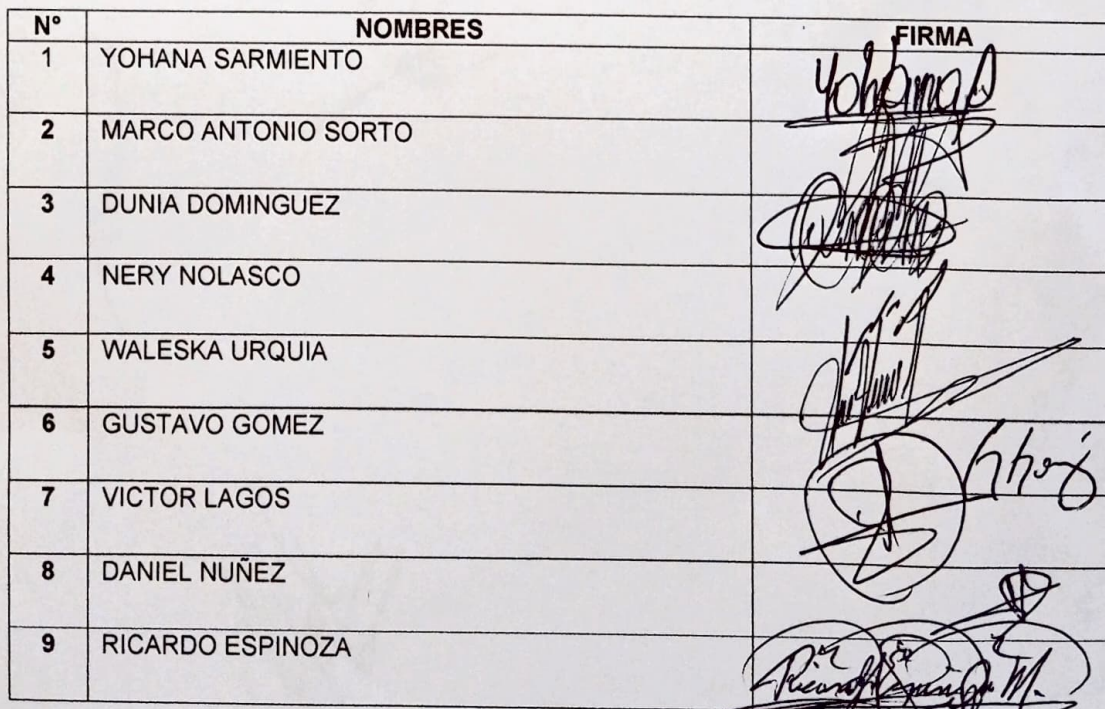 N° NOMBRES FIRMA
1 YOHANA SARMIENTO Yohana S
2 MARCO ANTONIO SORTO
3 DUNIA DOMINGUEZ
4 NERY NOLASCO
5 WALESKA URQUIA
6 GUSTAVO GOMEZ
7 VICTOR LAGOS
8 DANIEL NUÑEZ
9 RICARDO ESPINOZA Ricardo Espinoza M.